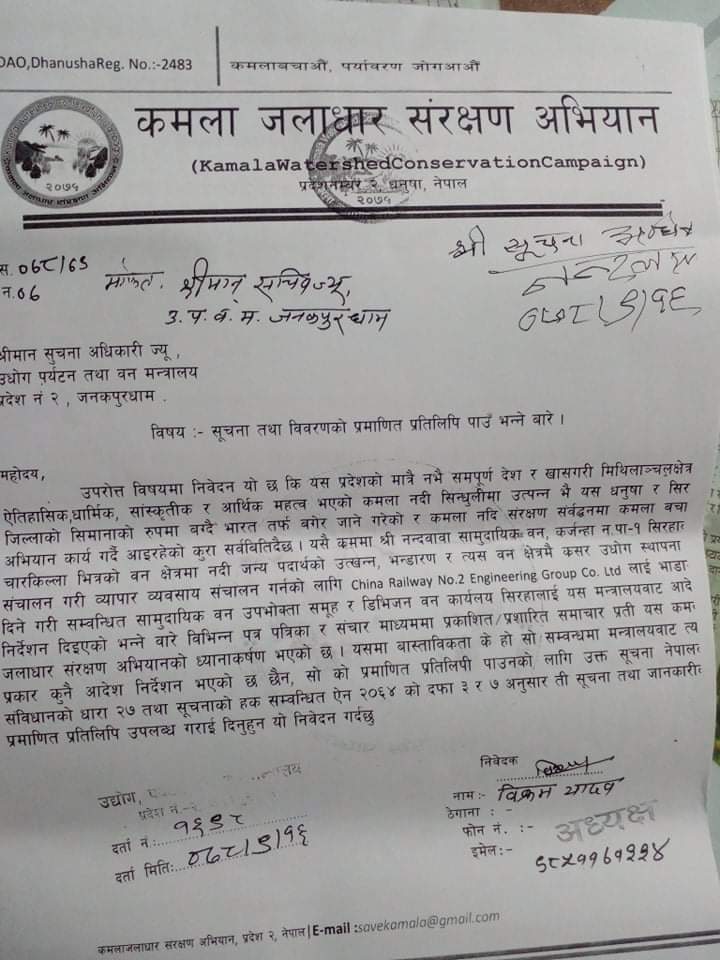 DAO,DhanushaReg. No.:-2483
कमलाबचाऔं, पर्यावरण जोगआऔं
कमला जलाधार संरक्षण अभियान
(KamalaWatershedConservationCampaign)
प्रदेशनम्बर २ धनुषा, नेपाल
२०७५
२०७५
श्री सूचना
स.०७८/७९
न.०७
मार्फत. श्रीमान् सचिवज्यू,
उ.प.व.म.जनकपुरधाम
श्रीमान सुचना अधिकारी ज्यू ,
उधोग पर्यटन तथा वन मन्त्रालय
प्रदेश नं २ , जनकपुरधाम .
विषय :- सूचना तथा विवरणको प्रमाणित प्रतिलिपि पाउँ भन्ने बारे ।
महोदय,
उपरोत्त विषयमा निवेदन यो छ कि यस प्रदेशको मात्रै नभै समपूर्ण देश र खासगरी मिथिलाञ्चलक्षेत्र
ऐतिहासिक,धार्मिक, सांस्कृतीक र आर्थिक महत्व भएको कमला नदी सिन्धुलीमा उत्पन्न भै यस धनुषा र सिर
जिल्लाको सिमानाको रुपमा बग्दै भारत तर्फ बगेर जाने गरेको र कमला नदि संरक्षण संर्वद्वनमा कमला बचा
अभियान कार्य गर्दै आइरहेको कुरा सर्वबितिदैछ । यसै क्रममा श्री नन्दवावा सामुदायिक वन, कर्जन्हा न.पा-१ सिरहा
चारकिल्ला भित्रको वन क्षेत्रमा नदी जन्य पदार्थको उत्खन्न, भन्डारण र त्यस वन क्षेत्रमै कसर उधोग स्थापना
संचालन गरी व्यापार व्यवसाय संचालन गर्नको लागि China Railway No.2 Engineering Group Co. Ltd लाई भाडा
दिने गरी सम्वन्धित सामुदायिक वन उपभोक्ता समूह र डिभिजन वन कार्यलय सिरहालाई यस मन्त्रालयवाट आदे
निर्देशन दिइएको भन्ने वारे विभिन्न पत्र पत्रिका र संचार माध्यममा प्रकाशित/प्रशारित समाचार प्रती यस कम
जलाधार संरक्षण अभियानको ध्यानाकर्षण भएको छ । यसमा बास्ताविकता के हो सो सम्वन्धमा मन्त्रालयवाट त्य
प्रकार कुनै आदेश निर्देशन भएको छ छैन, सो को प्रमाणित प्रतिलिपी पाउनको लागि उक्त सूचना नेपाल
संविधानको धारा २७ तथा सूचनाको हक सम्वन्धित ऐन २०६४ को दफा ३ र ७ अनुसार ती सूचना तथा जानकारी
प्रमाणित प्रतिलिपि उपलब्ध गराई दिनुहुन यो निवेदन गर्दछु
उद्योग,
प्रदेश नं.-२
दर्ता नं.:
दर्ता मिति: ०७८/९/१६
निवेदक
नाम:- विक्रम यादव
ठेगाना : -
फोन नं. :-
अध्यक्ष
इमेल:-
कमलाजलाधार संरक्षण अभियान, प्रदेश २, नेपाल|E-mail :savekamala@gmail.com